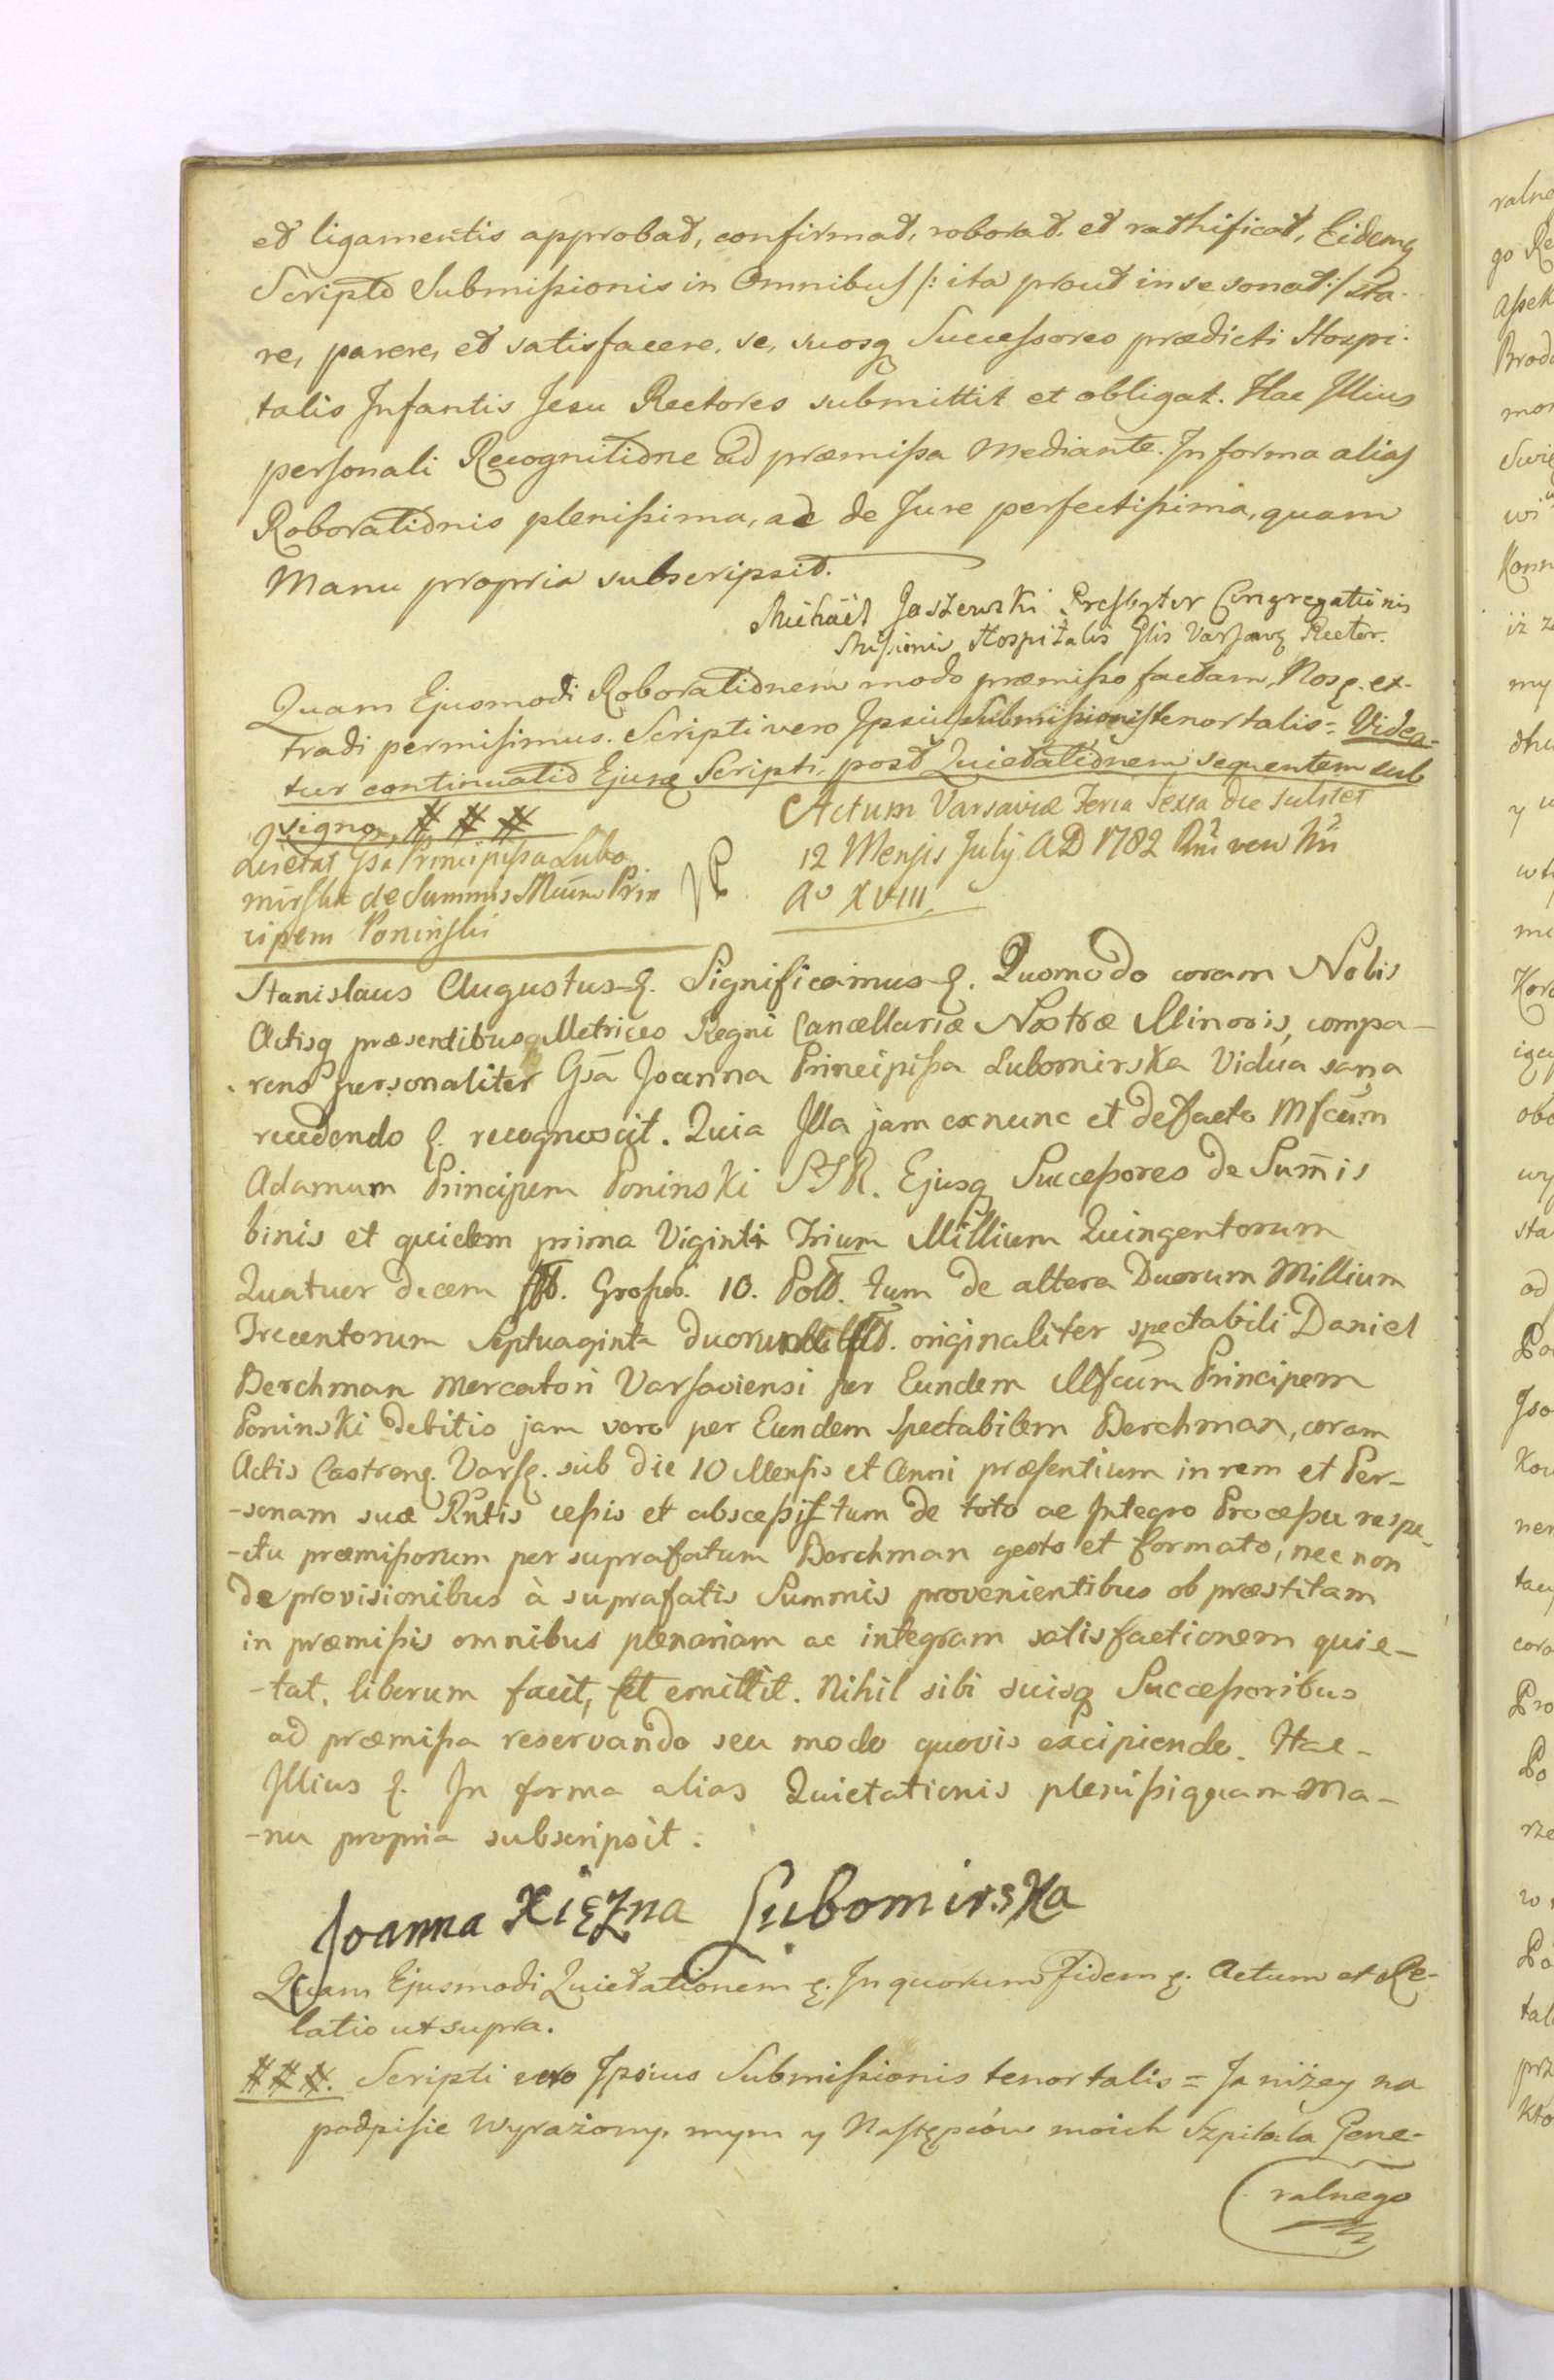 et ligamentis approbat, confirmat, roborat, et rathificat, Eidemq
Scripto Submissionis in Omnibus /: ita prout in se sonat :/ sta-
re, parere, et satisfacere, se, suosq Successores prædicti Hospi-
talis Infantis Jesu Rectores submittit et obligat. Hac Illius
personali Recognitione ad præmissa mediante. In forma alias
Roborationis plenissima, ac de Jure perfectissima, quam
Manu propria subscripsit.
Michaël Jaszewski Presbyter Congregationis
Missionis Hospitalis Glis Varsav. Rector.
Quam Ejusmodi Roborationem modo præmisso factam, Nos q. ex-
tradi permisimus. Scripti vero Ipsius Submissionis tenor talis = Videa-
tur continuatio Ejusq Scripti, post Quietationem sequentem sub
signo, # # #
Actum Varsaviæ Feria Sexta die scilicet
12 Mensis July A D 1782
Ao XVIII
Quietat Gsa Principissa Lubo
mirska de Summis Mcum Prin
cipem Poninski
Stanislaus Augustus q. Significamus q. Quomodo coram Nobis
Actisq præsentibus Metrices Regni Cancellariæ Nostræ Minoris, compa-
rens personaliter Gsa Joanna Principissa Lubomirska Vidua sana
recedendo q. recognoscit. Quia Illa jam ex nunc et de facto Mfcum
Adamum Principem Poninski S. I. R. Ejusq Successores de Sum̄is
binis et quidem prima Viginti Trium Millium Quingentorum
Quatuor decem flP. Grossor. 10. Pol. tum de altera Duorum Millium
Trecentorum Septuaginta duorum originaliter spectabili Daniel
Berchman Mercatori Varsaviensi per Eundem Mfcum Principem
Poninski debitis jam vero per Eundem Spectabilem Berchman, coram
Actis Castren. Vars. sub die 10 Mensis et Anni præsentium in rem et Per-
-sonam suæ Rntis cessis et abscessis tum de toto ac Integro Processu respe-
-ctu præmissorum per suprafatum Berchman gesto et formato, nec non
de provisionibus à suprafatis Summis provenientibus ob præstitam
in præmissis omnibus plenariam ac integram satisfactionem quie-
-tat, liberum facit, et emittit. Nihil sibi suisq Successoribus
ad præmissa reservando seu modo quovis excipiendo. Hac-
Illius q. In forma alias Quietationis plenissi quam Ma-
-nu propria subscripsit.
Joanna Xiężna Lubomirska
Quam Ejusmodi Quietationem q. In quorum Fidem q. Actum et Re-
latio ut supra.
# # #. Scripti vero Ipsius Submissionis tenor talis = Ja niżey na
podpisie Wyrażony, mym y Następców moich Szpitala Gene-
ralnego